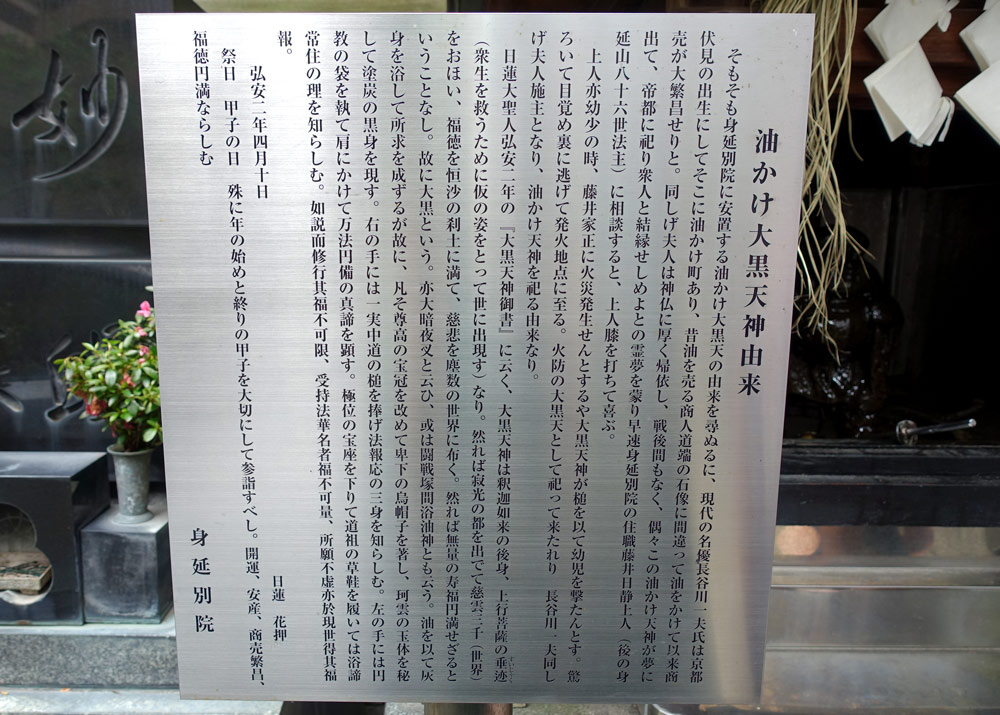 油かけ大黒天神由来
そもそも身延別院に安置する油かけ大黒天の由来を尋ぬるに、現代の名優長谷川一夫氏は京都
伏見の出生にしてそこに油かけ町あり、昔油を売る商人道端の石像に間違って油をかけて以来商
売が大繁昌せりと。同しげ夫人は神仏に厚く帰依し、戦後間もなく、偶々この油かけ天神が夢に
出て、帝都に祀り衆人と結縁せしめよとの霊夢を蒙り早速身延別院の住職藤井日静上人（後の身
延山八十六世法主）に相談すると、上人膝を打ちて喜ぶ。
上人亦幼少の時、藤井家正に火災発生せんとするや大黒天神が槌を以て幼児を撃たんとす。驚
ろいて目覚め裏に逃げて発火地点に至る。火防の大黒天として祀って来たれり　長谷川一夫同し
げ夫人施主となり、油かけ天神を祀る由来なり。
日蓮大聖人弘安二年の『大黒天神御書』に云く、大黒天神は釈迦如来の後身、上行菩薩の垂迹
（衆生を救うために仮の姿をとって世に出現す）なり。然れば寂光の都を出でて慈雲三千（世界）
をおほい、福徳を恒沙の刹土に満て、慈悲を塵数の世界に布く。然れば無量の寿福円満せざると
いうことなし。故に大黒という。亦大暗夜叉と云ひ、或は闘戦塚間浴油神とも云う。油を以て灰
身を浴して所求を成ずるが故に、凡そ尊高の宝冠を改めて卑下の烏帽子を著し、珂雲の玉体を秘
して塗炭の黒身を現す。右の手には一実中道の槌を捧げ法報応の三身を知らしむ。左の手には円
教の袋を執て肩にかけて万法円備の真諦を顕す。極位の宝座を下りて道祖の草鞋を履いては浴諦
常住の理を知らしむ。如説而修行其福不可限、受持法華名者福不可量、所願不虚亦於現世得其福
報。
弘安二年四月十日
日蓮　花押
祭日　甲子の日　殊に年の始めと終りの甲子を大切にして参詣すべし。開運、安産、商売繁昌、
福徳円満ならしむ
身延別院
妙